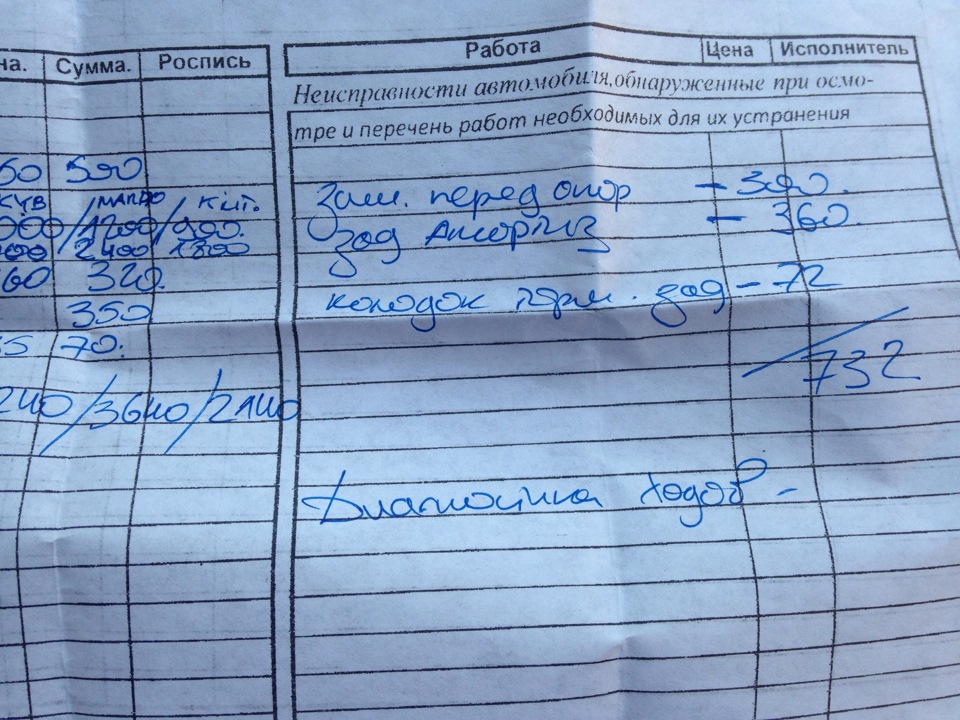 на. Сумма. Роспись
60 500
КУВ /МАНДО / Кит.
000/1200/900.
800 2400 1800
60 320.
350
35 70.
240/3640/2140
Работа Цена Исполнитель
Неисправности автомобиля,обнаруженные при осмо-
тре и перечень работ необходимых для их устранения
зам. перед опор - 300.
зад Аморт - 360
колодок торм. зад - 72
732
Диагностика ходов -